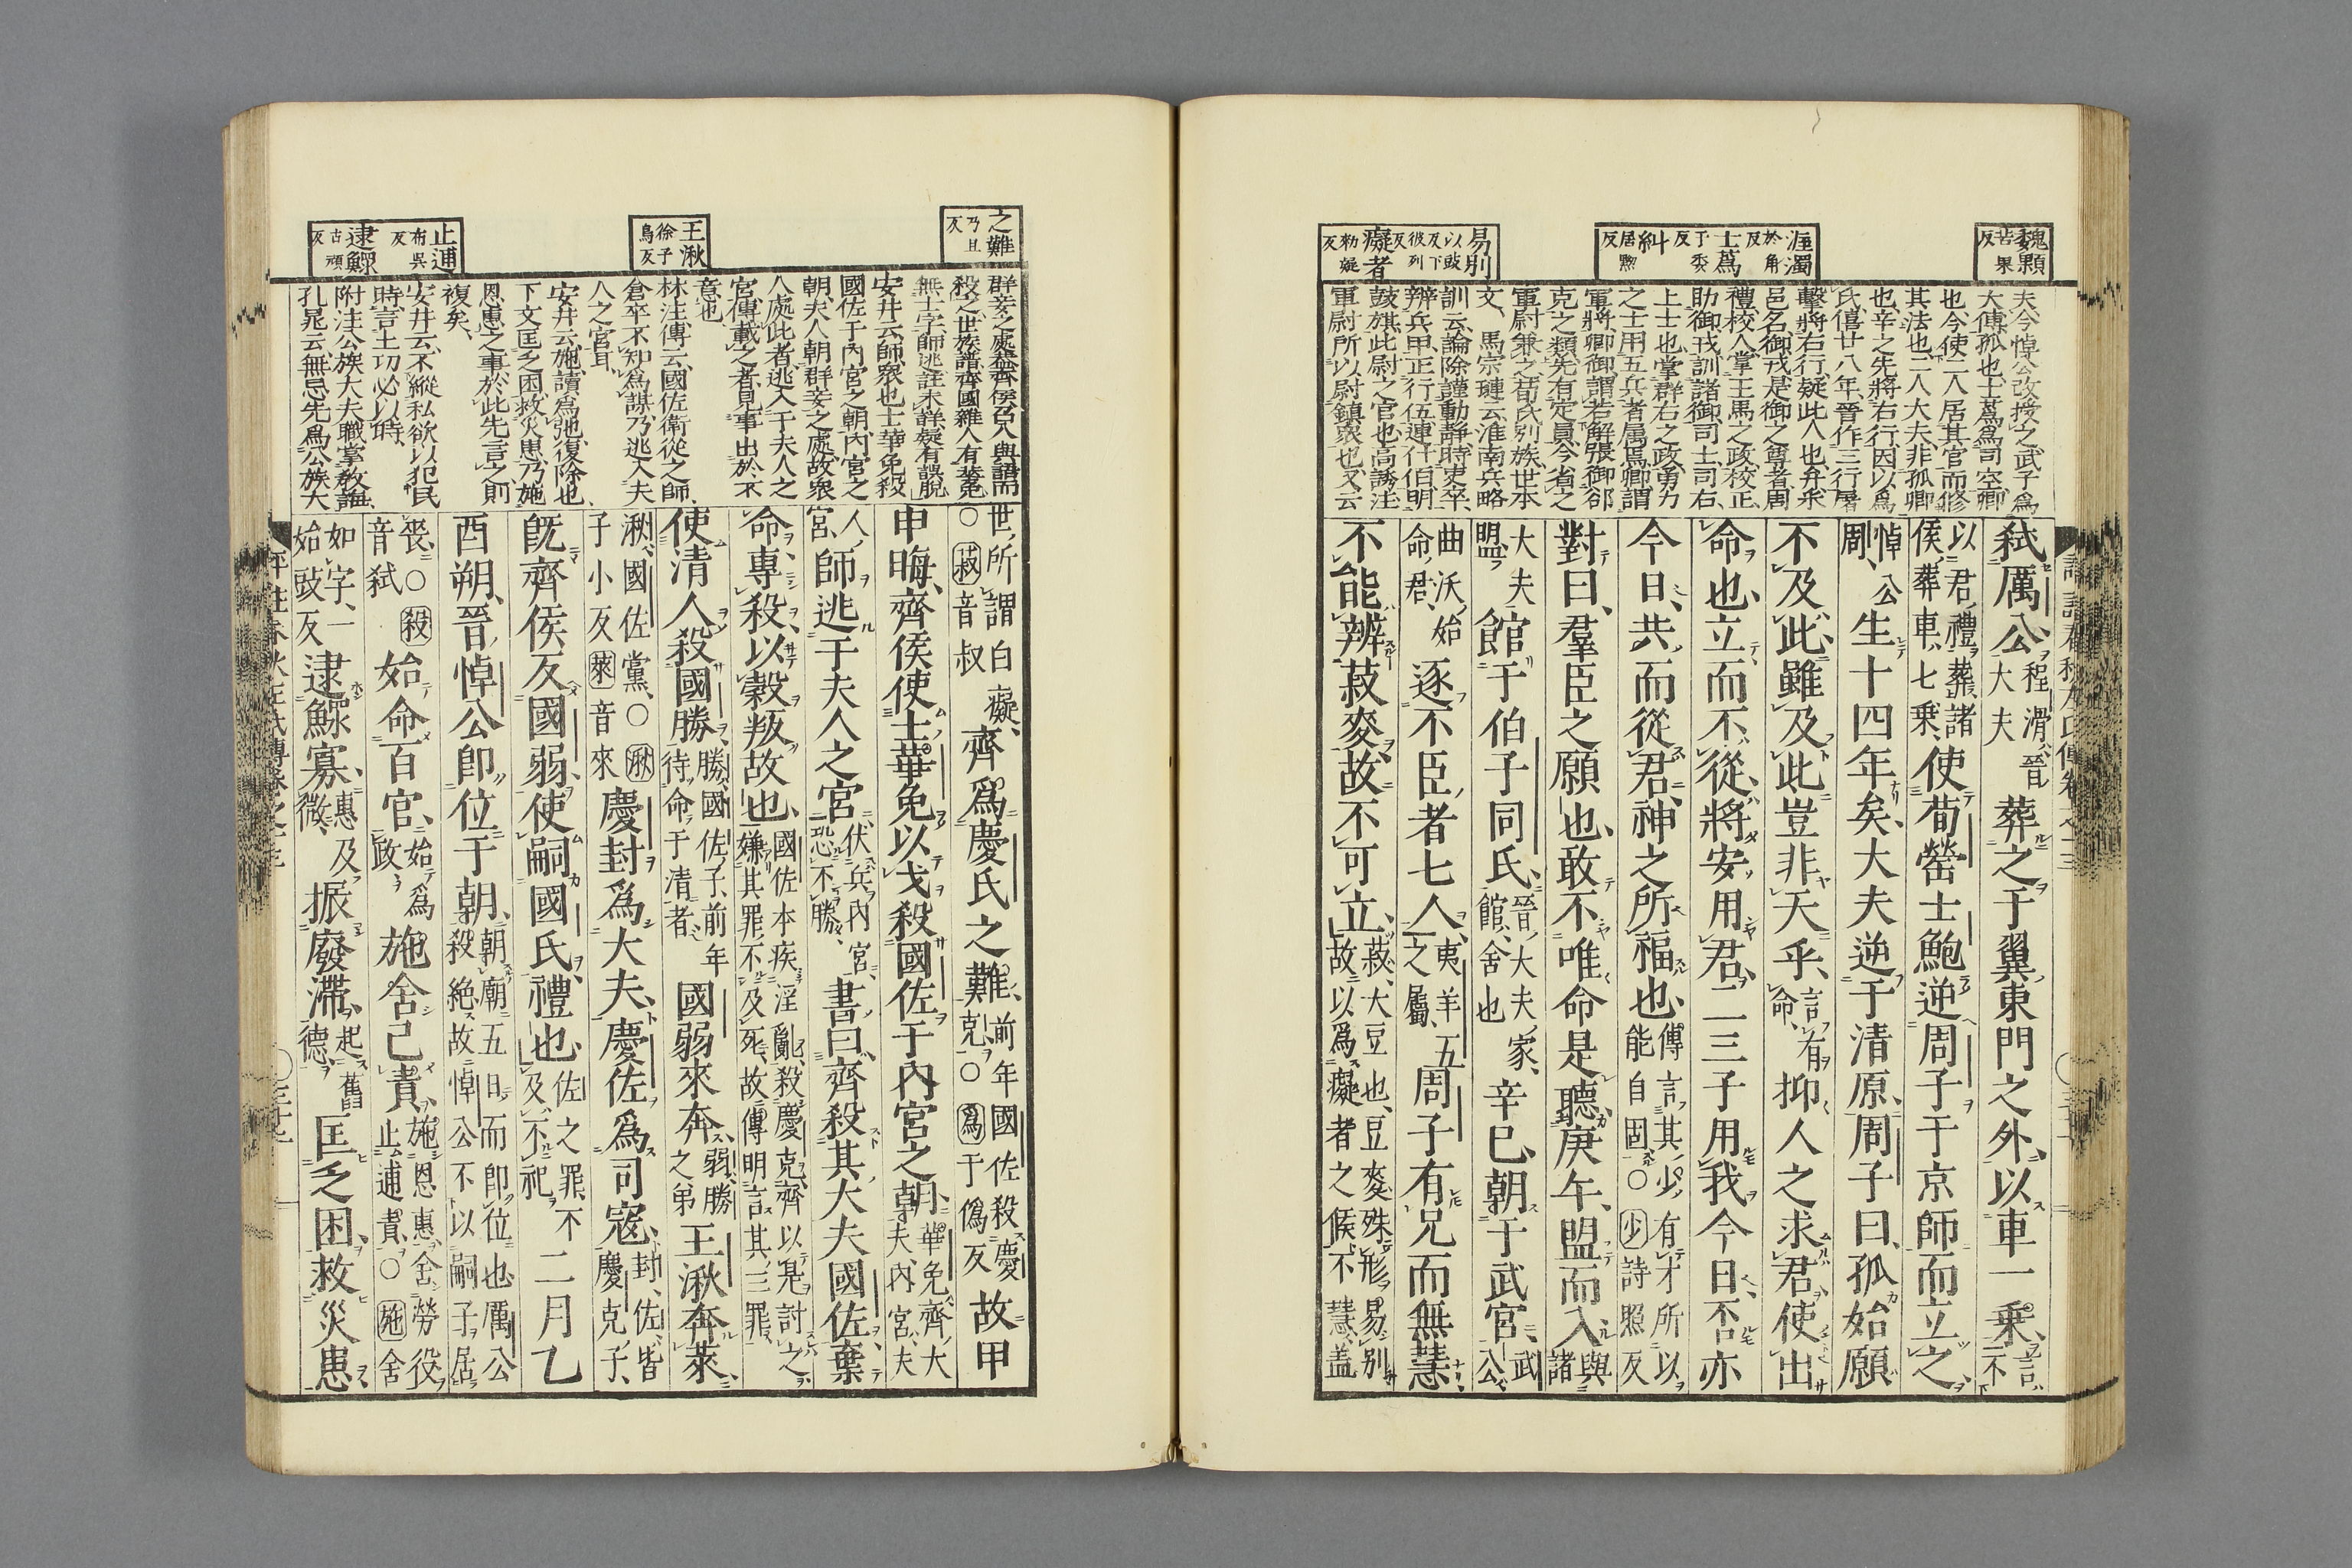 魏顆 苦果反
渥濁 於角反
士蔿 于委反
糾 居黝反
易別 以豉反下彼列反
癡者 勑疑反
夫今悼公改授之武子爲
大傅孤也士蔿爲司空卿
也今使二人居其官而修
其法也二人大夫非孤卿
也辛之先將右行因以爲
氏僖廿八年晉作三行屠
擊將右行疑此人也弁乘
邑名御戎是御之尊者周
禮校人掌王馬之政校正
助御戎訓諸御司士司右
上士也掌群右之政勇力
之士用五兵者属焉卿謂
軍將卿御謂若解張御郤
克之類先有定員今省之
軍尉兼之荀氏別族世本
文 馬宗璉云淮南兵略
訓云論除謹動靜時吏卒
辨兵甲正行伍連什伯明
鼓旗此尉之官也高誘注
軍尉所以尉鎮衆也又云
弑厲公程滑晉大夫葬之于翼東門之外以車一乘言不
以君禮葬諸侯葬車七乘使荀罃士魴逆周子于京師而立之
悼公周生十四年矣大夫逆于清原周子曰孤始願
不及此雖及此豈非天乎言有命抑人之求君使出
命也立而不從將安用君二三子用我今日否亦
今日共而從君神之所福也傳言其少有才所以能自固○少詩照反
對曰羣臣之願也敢不唯命是聽庚午盟而入與諸
大夫盟館于伯子同氏晉大夫家館舍也辛巳朝于武宮武公
曲沃始命君逐不臣者七人夷羊五之屬周子有兄而無慧
不能辨菽麥故不可立菽大豆也豆麥殊形易別故以爲癡者之候不慧蓋
之難 乃旦反
王湫 徐子鳥反
止逋 布吳反
逮鰥 古頑反
群妾之處蓋齊侯召入與語而
殺之世族譜齊國雜人有華免
無士字師逃註未詳疑有誤脫
安井云師衆也士華免殺
國佐于內宮之朝內宮之
朝夫人朝群妾之處故衆
人處此者逃入于夫人之
宮傳載之者見事出於不
意也
林注傳云國佐衛從之師
倉卒不知爲謀乃逃入夫
人之宮耳
安井云施讀爲弛復除也
下文匡乏困救災患乃施
恩惠之事於此先言之則
複矣
安井云不縱私欲以犯民
時言土功必以時
附注公族大夫職掌教誨
孔晁云無忌先爲公族大
世所謂白癡○菽音叔齊爲慶氏之難前年國佐殺慶克○爲于僞反故甲
申晦齊侯使士華免以戈殺國佐于內宮之朝華免齊大夫內宮夫
人宮師逃于夫人之宮伏兵內宮恐不勝書曰齊殺其大夫國佐棄
命專殺以穀叛故也國佐本疾淫亂殺慶克齊以是討之嫌其罪不及死故傳明言其三罪
使清人殺國勝勝國佐子前年待命于清者國弱來奔弱勝之弟王湫奔萊
湫國佐黨○湫子小反萊音來慶封爲大夫慶佐爲司寇封佐皆慶克子
既齊侯反國弱使嗣國氏禮也佐之罪不及不祀二月乙
酉朔晉悼公即位于朝朝廟五日而即位也厲公殺絕故悼公不以嗣子居
喪○殺音弑始命百官始爲政施舍己責施恩惠舍勞役止逋責○施舍
如字一始豉反逮鰥寡惠及微振廢滯起舊德匡乏困救災患